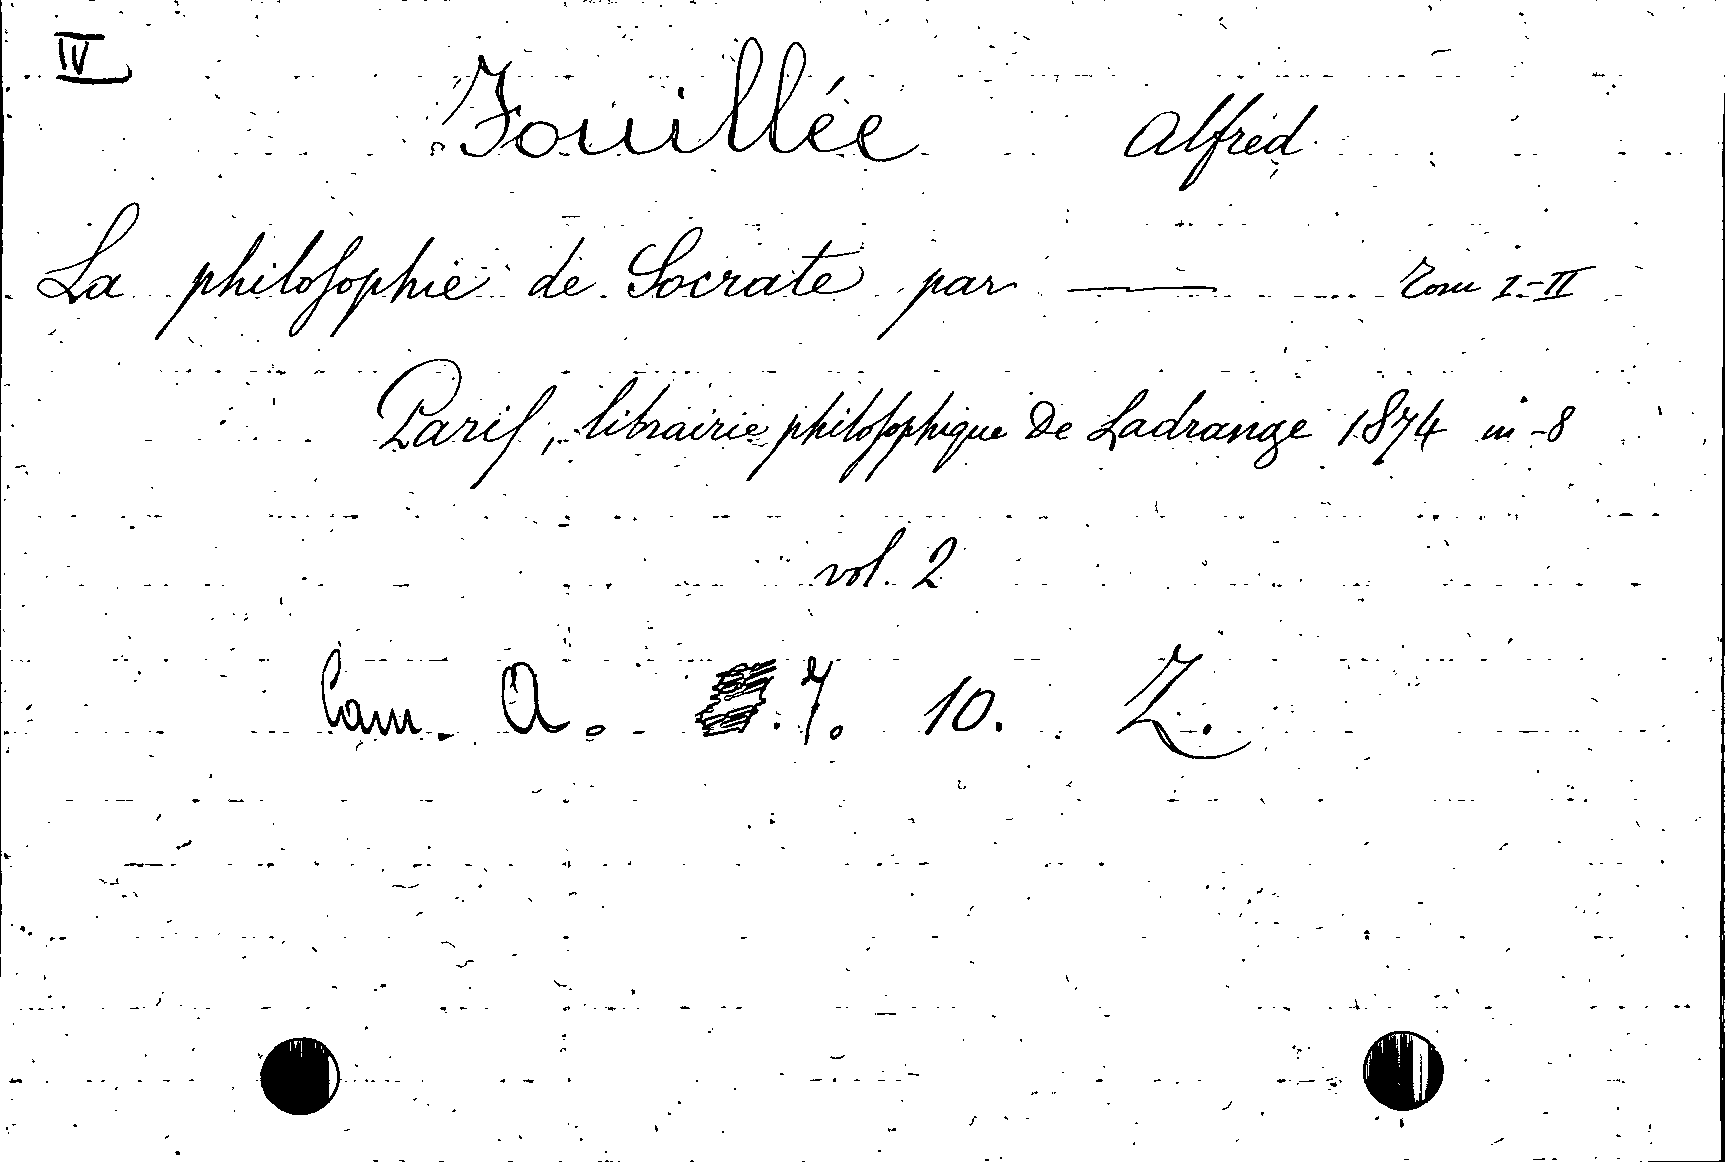 IV
Fouillée Alfred
La philosophie de Socrate par —— Tom I-II
Paris, librairie philosophique de Ladrange 1874 in-8
vol. 2
Cam. A. 7. 10. Z.